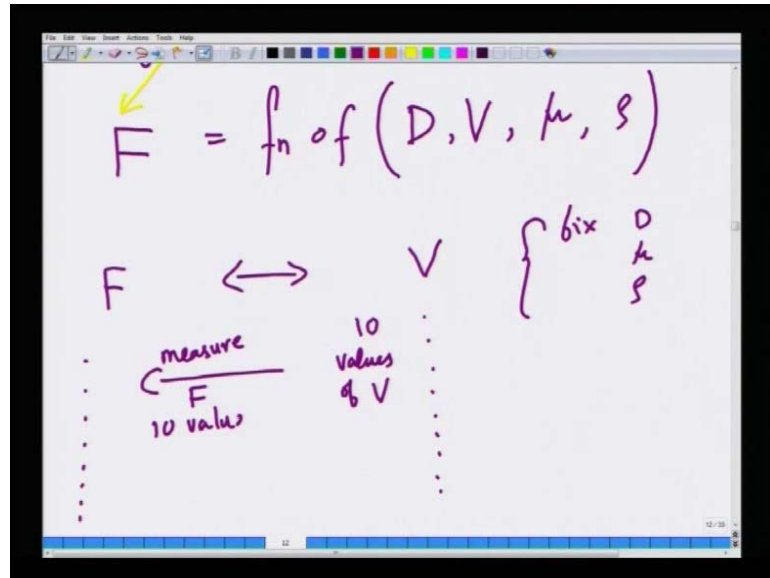 File Edit View Insert Actions Tools Help
F = fn of (D, V, μ, ρ)
F ↔ V { fix D
μ
ρ
measure
F
10 values
10
values
of V
12
12/33